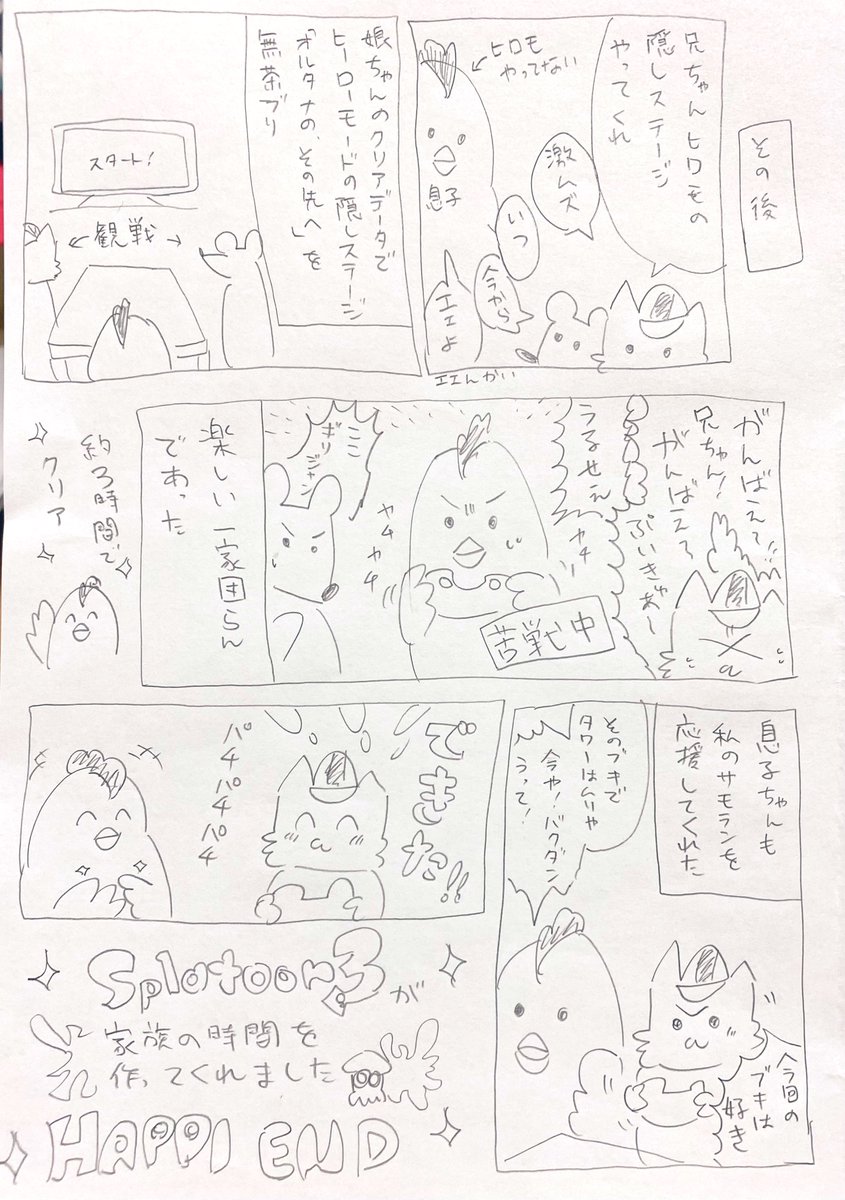 その後
兄ちゃんヒロモの
隠しステージ
やってくれ
←ヒロモ
やってない
激ムズ
息子
いつ
今から
エエよ
エエんかい
娘ちゃんのクリアデータで
ヒーローモードの隠しステージ
「オルタナの、その先へ」を
無茶ブリ
スタート!
←観戦→
がんばえ〜!!
兄ちゃん!
がんばえ〜
ぷいきゅあー
うるせぇ
ヤチ
ヤチヤチ
苦戦中
ミミ
ギリ
ジャン
楽しい一家団らん
であった
約3時間で
クリア
息子ちゃんも
私のサモランを
応援してくれた
そのブキで
タワーはムリや
今や!バクダン
うって!
今回の
ブキは
好き
できた!!
パチパチパチ
Splatoon3が
家族の時間を
作ってくれました
HAPPI END